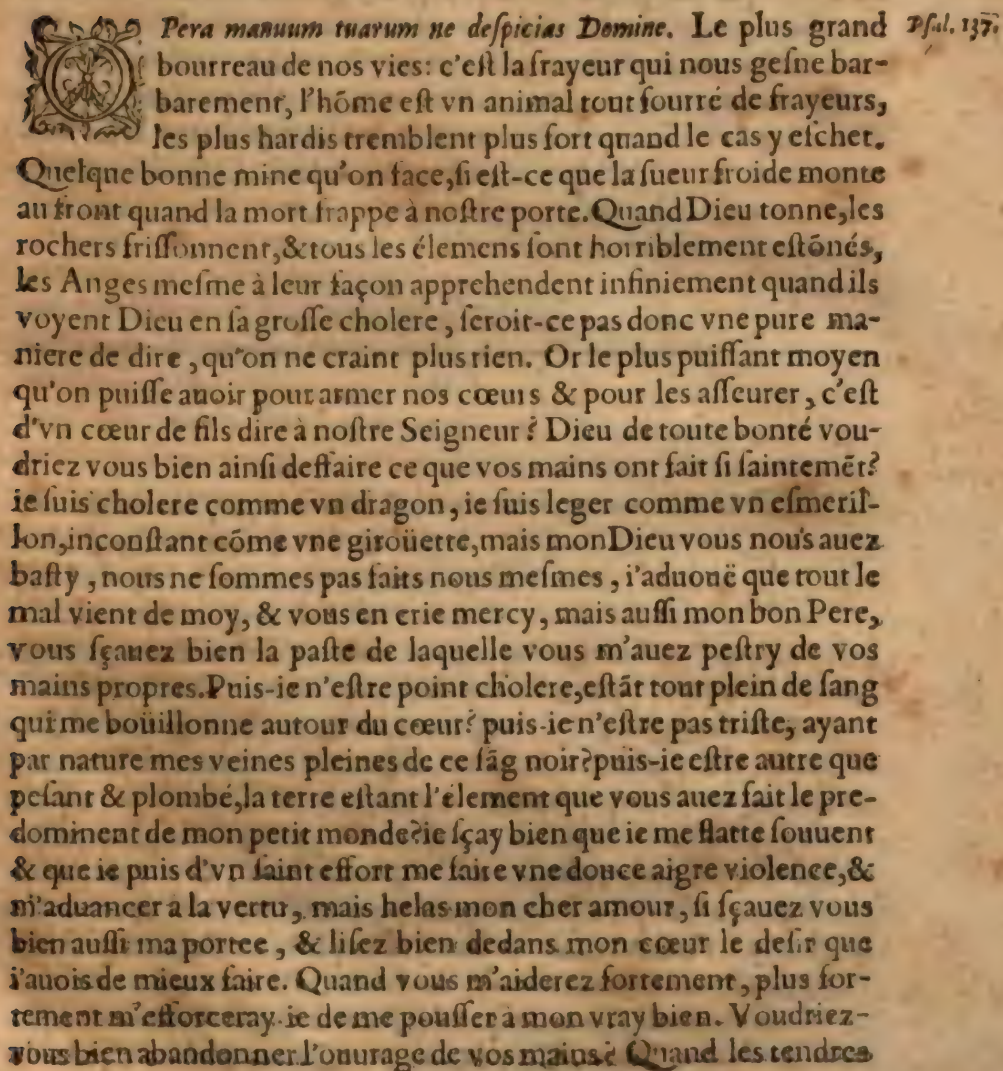 OPera manuum tuarum ne deſpicias Domine. Le plus grand Pſal. 137.
bourreau de nos vies: c'eſt la frayeur qui nous geſne bar-
barement, l'hõme eſt vn animal tout fourré de frayeurs,
les plus hardis tremblent plus fort quand le cas y eſchet.
Quelque bonne mine qu'on face, ſi eſt-ce que la ſueur froide monte
au front quand la mort frappe à noſtre porte. Quand Dieu tonne, les
rochers friſſonnent, & tous les élemens ſont horriblement eſtõnés,
les Anges meſme à leur façon apprehendent infiniement quand ils
voyent Dieu en ſa groſſe cholere, ſeroit-ce pas donc vne pure ma-
niere de dire, qu'on ne craint plus rien. Or le plus puiſſant moyen
qu'on puiſſe auoir pour armer nos cœurs & pour les aſſeurer, c'eſt
d'vn cœur de fils dire à noſtre Seigneur? Dieu de toute bonté vou-
driez vous bien ainſi deffaire ce que vos mains ont fait ſi ſaintemẽt?
ie ſuis cholere comme vn dragon, ie ſuis leger comme vn eſmeril-
lon, inconſtant cõme vne giroüette, mais mon Dieu vous nous auez
baſty, nous ne ſommes pas faits nous meſmes, i'aduouë que tout le
mal vient de moy, & vous en crie mercy, mais auſſi mon bon Pere,
vous ſçauez bien la paſte de laquelle vous m'auez peſtry de vos
mains propres. Puis-ie n'eſtre point cholere, eſtãt tout plein de ſang
qui me boüillonne autour du cœur? puis-ie n'eſtre pas triſte, ayant
par nature mes veines pleines de ce ſãg noir? puis-ie eſtre autre que
peſant & plombé, la terre eſtant l'élement que vous auez fait le pre-
dominent de mon petit monde? ie ſçay bien que ie me flatte ſouuent
& que ie puis d'vn ſaint effort me faire vne douce aigre violence, &
m'aduancer a la vertu, mais helas mon cher amour, ſi ſçauez vous
bien auſſi ma portee, & liſez bien dedans mon cœur le deſir que
i'auois de mieux faire. Quand vous m'aiderez fortement, plus for-
tement m'efforceray-ie de me pouſſer à mon vray bien. Voudriez-
vous bien abandonner l'ouurage de vos mains? Quand les tendres